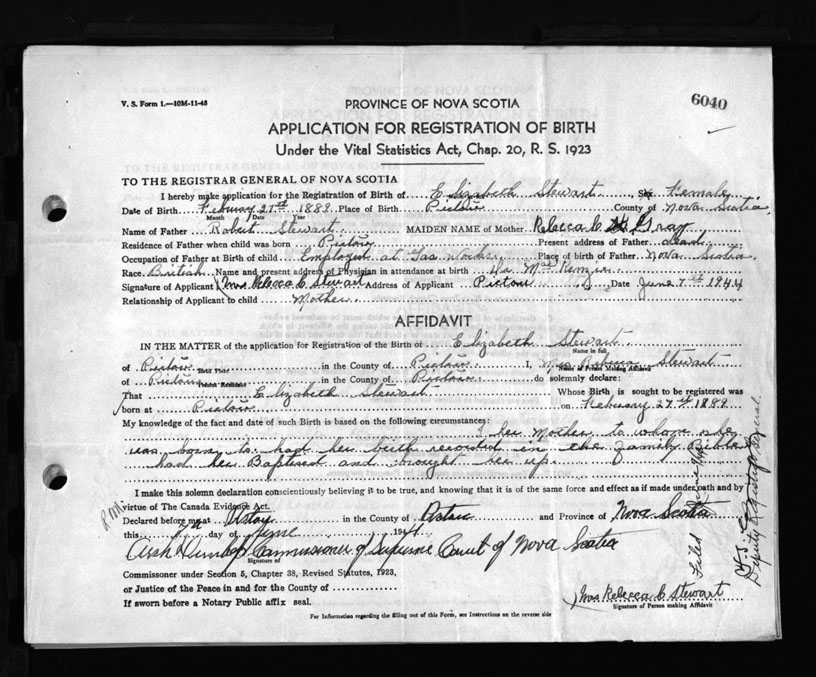 V. S. Form 1.—10M-11-45
6040
PROVINCE OF NOVA SCOTIA
APPLICATION FOR REGISTRATION OF BIRTH
Under the Vital Statistics Act, Chap. 20, R. S. 1923
TO THE REGISTRAR GENERAL OF NOVA SCOTIA
I hereby make application for the Registration of Birth of Elizabeth Stewart Sex Female
Date of Birth Febuary 27th 1889 Place of Birth Pictou County of Nova Scotia
Month Date Year
Name of Father Robert Stewart MAIDEN NAME of Mother Rebecca C Gray
Residence of Father when child was born Pictou Present address of Father dead
Occupation of Father at Birth of child Employed at Gas Works Place of birth of Father Nova Scotia
Race British Name and present address of Physician in attendance at birth Dr
Signature of Applicant Mrs Rebecca C Stewart Address of Applicant Pictou Date June 7th 1944
Relationship of Applicant to child Mother
AFFIDAVIT
IN THE MATTER of the application for Registration of the Birth of Elizabeth Stewart
Name in full
of Pictou in the County of Pictou I, Mrs Rebecca Stewart
Birth Place Name of Person Making Affidavit
of Pictou in the County of Pictou do solemnly declare:
Present Residence
That Elizabeth Stewart Whose Birth is sought to be registered was
born at Pictou on Febuary 27th 1889
My knowledge of the fact and date of such Birth is based on the following circumstances:
I her Mother to whom she
was born to had her birth recorded in the Family Bible
had her Baptised and brought her up
I make this solemn declaration conscientiously believing it to be true, and knowing that it is of the same force and effect as if made under oath and by
virtue of The Canada Evidence Act.
Declared before me at Pictou in the County of Pictou and Province of Nova Scotia
this 7th day of June 1944
Commissioner of Supreme Court of Nova Scotia
Signature of
Commissioner under Section 5, Chapter 38, Revised Statutes, 1923,
or Justice of the Peace in and for the County of
If sworn before a Notary Public affix seal.
Mrs Rebecca C Stewart
Signature of Person making Affidavit
For Information regarding the filling out of this Form, see Instructions on the reverse side
Filed
Deputy Registrar General